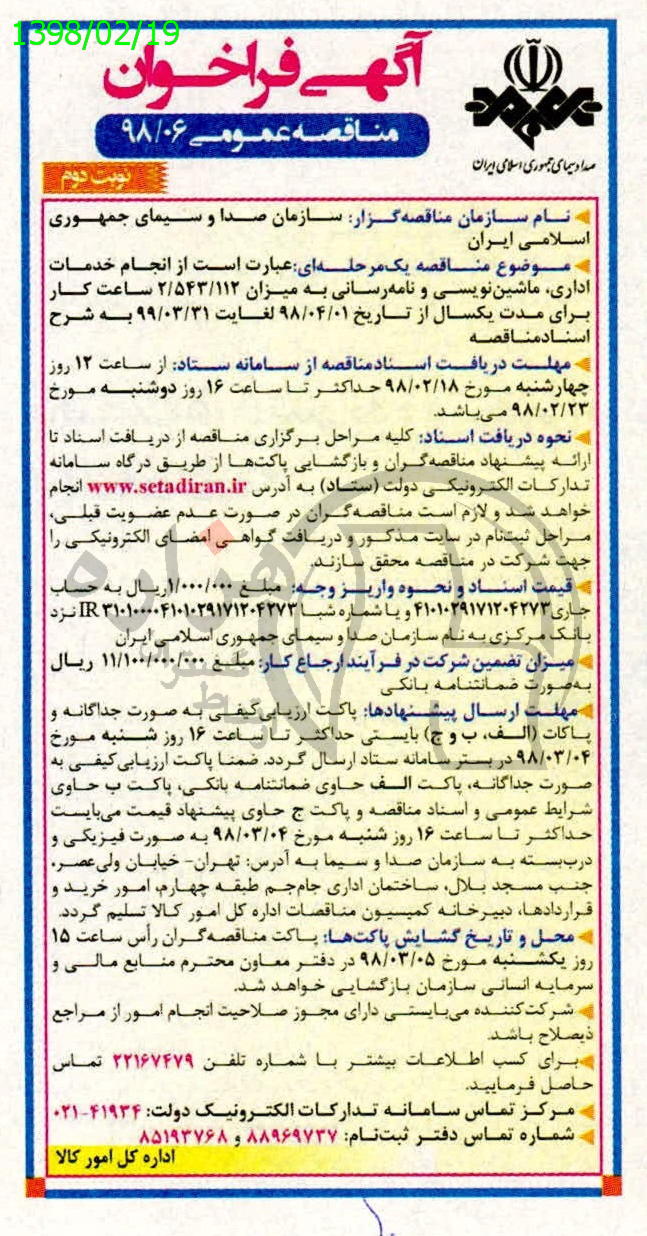 1398/02/19
آگهی فراخوان
مناقصه عمومی ۹۸/۰۶
صدا و سیمای جمهوری اسلامی ایران
نوبت دوم
نـام سـازمان مناقصه‌گـزار: سازمان صدا و سیمای جمهوری
اسلامی ایران
موضوع مناقصه یک‌مرحله‌ای: عبارت است از انجام خدمات
اداری، ماشین‌نویسی و نامه‌رسانی به میزان ۲/۵۴۳/۱۱۲ ساعت کار
برای مدت یکسال از تاریخ ۹۸/۰۴/۰۱ لغایت ۹۹/۰۳/۳۱ به شرح
اسناد مناقصه
مهلت دریافت اسناد مناقصه از سامانه ستاد: از ساعت ۱۲ روز
چهارشنبه مورخ ۹۸/۰۲/۱۸ حداکثر تا ساعت ۱۶ روز دوشنبه مورخ
۹۸/۰۲/۲۳ می‌باشد.
نحوه دریافت اسناد: کلیه مراحل برگزاری مناقصه از دریافت اسناد تا
ارائه پیشنهاد مناقصه‌گران و بازگشایی پاکت‌ها از طریق درگاه سامانه
تدارکات الکترونیکی دولت (ستاد) به آدرس www.setadiran.ir انجام
خواهد شد و لازم است مناقصه‌گران در صورت عدم عضویت قبلی،
مراحل ثبت‌نام در سایت مذکور و دریافت گواهی امضای الکترونیکی را
جهت شرکت در مناقصه محقق سازند.
قیمت اسناد و نحوه واریز وجه: مبلغ ۱/۰۰۰/۰۰۰ریال به حساب
جاری ۴۱۰۱۰۲۹۱۷۱۲۰۴۲۷۳ و یا شماره شبا IR ۳۱۰۱۰۰۰۰۴۱۰۱۰۲۹۱۷۱۲۰۴۲۷۳ نزد
بانک مرکزی به نام سازمان صدا و سیمای جمهوری اسلامی ایران
میزان تضمین شرکت در فرآیند ارجاع کار: مبلغ ۱۱/۱۰۰/۰۰۰/۰۰۰ ریال
به‌صورت ضمانتنامه بانکی
مهلت ارسال پیشنهادها: پاکت ارزیابی‌کیفی به صورت جداگانه و
پاکات (الف، ب و ج) بایستی حداکثر تا ساعت ۱۶ روز شنبه مورخ
۹۸/۰۳/۰۴ در بستر سامانه ستاد ارسال گردد. ضمنا پاکت ارزیابی‌کیفی به
صورت جداگانه، پاکت الف حاوی ضمانتنامه بانکی، پاکت ب حاوی
شرایط عمومی و اسناد مناقصه و پاکت ج حاوی پیشنهاد قیمت می‌بایست
حداکثر تا ساعت ۱۶ روز شنبه مورخ ۹۸/۰۳/۰۴ به صورت فیزیکی و
دربسته به سازمان صدا و سیما به آدرس: تهران- خیابان ولی‌عصر،
جنب مسجد بلال، ساختمان اداری جام‌جم طبقه چهارم، امور خرید و
قراردادها، دبیرخانه کمیسیون مناقصات اداره کل امور کالا تسلیم گردد.
محل و تاریخ گشایش پاکت‌ها: پاکت مناقصه‌گران رأس ساعت ۱۵
روز یکشنبه مورخ ۹۸/۰۳/۰۵ در دفتر معاون محترم منابع مالی و
سرمایه انسانی سازمان بازگشایی خواهد شد.
شرکت‌کننده می‌بایستی دارای مجوز صلاحیت انجام امور از مراجع
ذیصلاح باشد.
برای کسب اطلاعات بیشتر با شماره تلفن ۲۲۱۶۷۴۷۹ تماس
حاصل فرمایید.
مرکز تماس سامانه تدارکات الکترونیک دولت: ۴۱۹۳۴-۰۲۱
شماره تماس دفتر ثبت‌نام: ۸۸۹۶۹۷۳۷ و ۸۵۱۹۳۷۶۸
اداره کل امور کالا